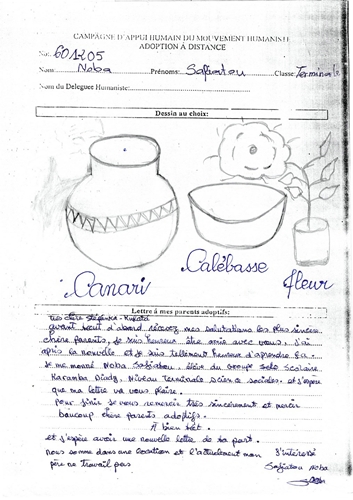 CAMPAGNE D'APPUI HUMAIN DU MOUVEMENT HUMANISTE
ADOPTION À DISTANCE
No: 601205
Nom: Noba Prénoms: Safiatou Classe: Terminale
Nom du Deleguee Humaniste:
Dessin au choix:
Canari
Calébasse
fleur
Lettre à mes parents adoptifs:
très chère
avant tout d'abord recevez mes salutations les plus sincère
chère parents, je suis heureux être amie avec vous, j'ai
appris la nouvelle et je suis tellement heureux d'aprendre ça.
Je me nomme Noba Safiatou, élève du Groupe Scolaire
Karamba Diaby, Niveau Terminale sociales, et j'espere
que ma lettre va vous plaire.
pour finir je vous remercie très sincèrement et merci
beaucoup chère parents adoptifs.
À bien tôt.
et j'espère avoir une nouvelle lettre de ta part.
nous somme dans une location et l'actuelment mon
père ne travail pas
S'interessé
Safiatou Noba